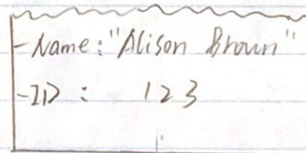 -Name: "Alison Brown"
-ID : 123